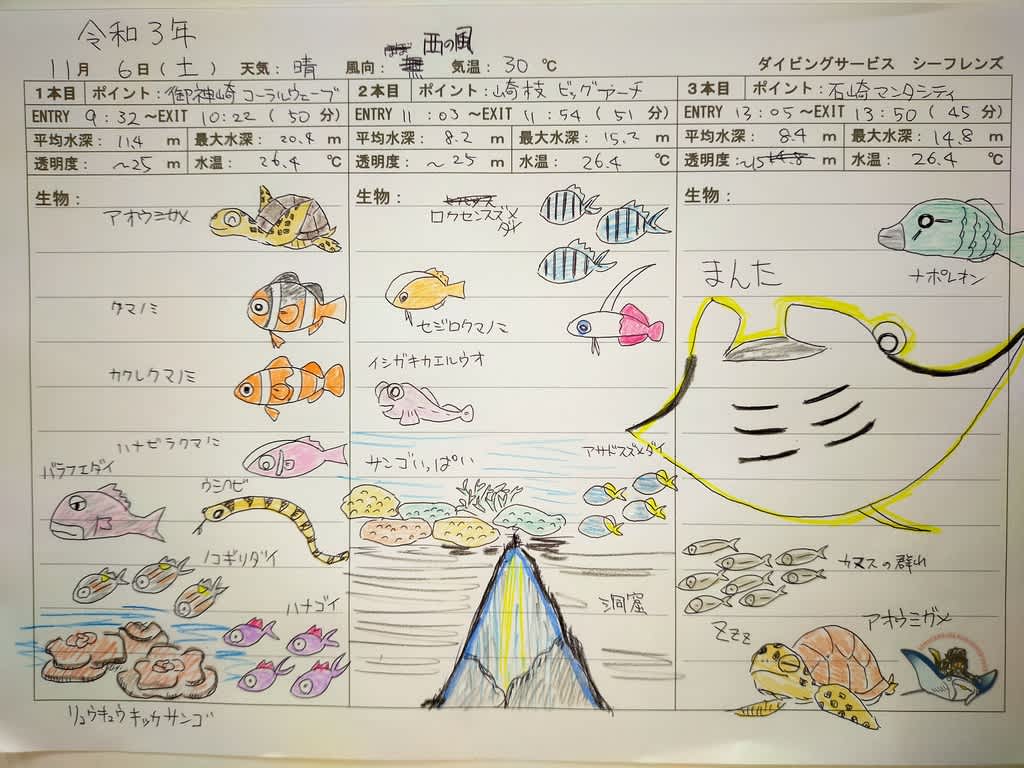 令和3年
西の風
11月 6日(土) 天気:晴 風向: 気温:30 ℃ ダイビングサービス シーフレンズ
1本目 ポイント:御神崎 コーラルウェーブ
ENTRY 9:32 ~EXIT 10:22 (50 分)
平均水深:11.4 m 最大水深:20.4 m
透明度:~25 m 水温:26.4 ℃
生物:
アオウミガメ
クマノミ
カクレクマノミ
ハナビラクマノミ
バラフエダイ
ウミヘビ
ノコギリダイ
ハナゴイ
リュウキュウキッカサンゴ
2本目 ポイント:崎枝 ビッグアーチ
ENTRY 11:03 ~EXIT 11:54 (51 分)
平均水深:8.2 m 最大水深:15.2 m
透明度:~25 m 水温:26.4 ℃
生物:
ロクセンスズメ
ダイ
セジロクマノミ
イシガキカエルウオ
サンゴいっぱい
アサドスズメダイ
洞窟
3本目 ポイント:石崎 マンタシティ
ENTRY 13:05 ~EXIT 13:50 (45 分)
平均水深:8.4 m 最大水深:14.8 m
透明度:~15 m 水温:26.4 ℃
生物:
ナポレオン
まんた
カマスの群れ
アオウミガメ
Zzz